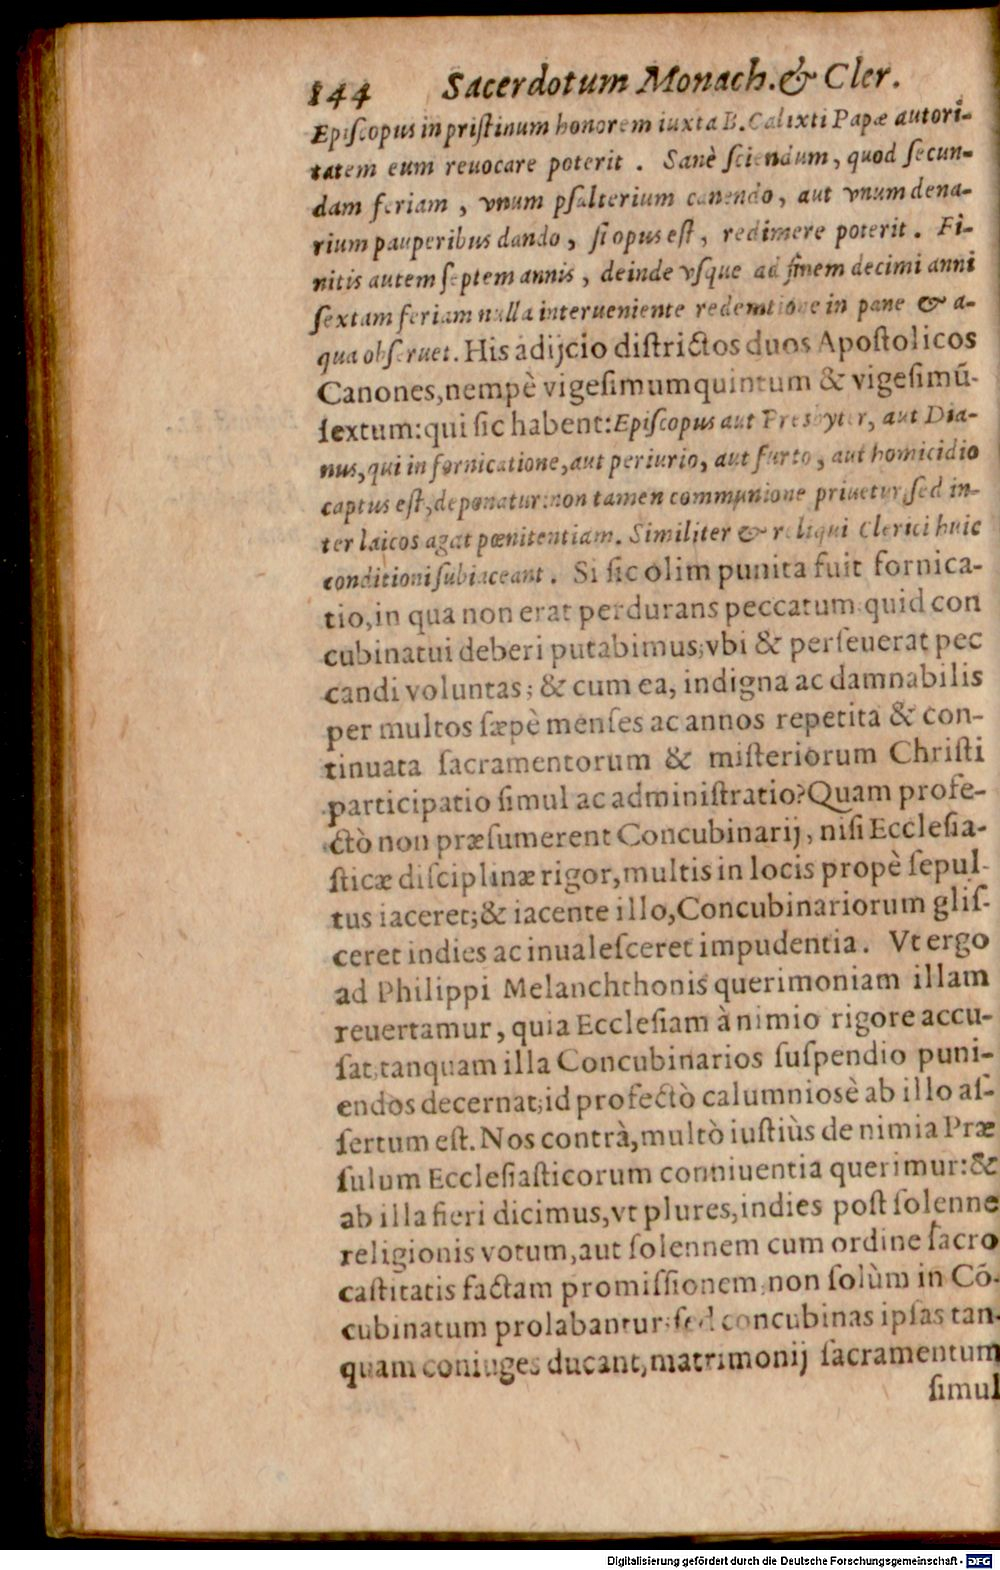 144 Sacerdotum Monach. & Cler.
Epiſcopus in priſtinum honorem iuxta B. Calixti Papæ autori-
tatem eum reuocare poterit . Sanè ſciendum, quod ſecun-
dam feriam , vnum pſalterium canendo, aut vnum dena-
rium pauperibus dando, ſi opus eſt, redimere poterit . Fi-
nitis autem ſeptem annis, deinde vſque ad finem decimi anni
ſextam feriam nulla interueniente redemtione in pane & a-
qua obſeruet. His adijcio diſtrictos duos Apoſtolicos
Canones, nempè vigeſimumquintum & vigeſimū-
ſextum: qui ſic habent: Epiſcopus aut Presbyter, aut Dia-
nus, qui in fornicatione, aut periurio, aut furto, aut homicidio
captus eſt, deponatur: non tamen communione priuetur, ſed in-
ter laicos agat pœnitentiam. Similiter & reliqui Clerici huic
conditioni ſubiaceant . Si ſic olim punita fuit fornica-
tio, in qua non erat perdurans peccatum: quid con
cubinatui deberi putabimus; vbi & perſeuerat pec
candi voluntas; & cum ea, indigna ac damnabilis
per multos ſæpè menſes ac annos repetita & con-
tinuata ſacramentorum & miſteriorum Chriſti
participatio ſimul ac adminiſtratio? Quam profe-
ctò non præſumerent Concubinarij, niſi Eccleſia-
ſticæ diſciplinæ rigor, multis in locis propè ſepul-
tus iaceret; & iacente illo, Concubinariorum gliſ-
ceret indies ac inualeſceret impudentia. Vt ergo
ad Philippi Melanchthonis querimoniam illam
reuertamur, quia Eccleſiam à nimio rigore accu-
ſat, tanquam illa Concubinarios ſuſpendio puni-
endos decernat; id profectò calumniosè ab illo aſ-
ſertum eſt. Nos contrà, multò iuſtiùs de nimia Præ
ſulum Eccleſiaſticorum conniuentia querimur: &
ab illa fieri dicimus, vt plures, indies poſt ſolenne
religionis votum, aut ſolennem cum ordine ſacro
caſtitatis factam promiſſionem, non ſolùm in Cō-
cubinatum prolabantur; ſed concubinas ipſas tan-
quam coniuges ducant, matrimonij ſacramentum
ſimul
Digitalisierung gefördert durch die Deutsche Forschungsgemeinschaft - DFG